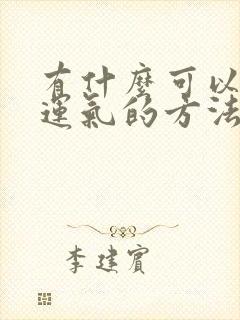 有什麼可以
運氣的方法
李建賓